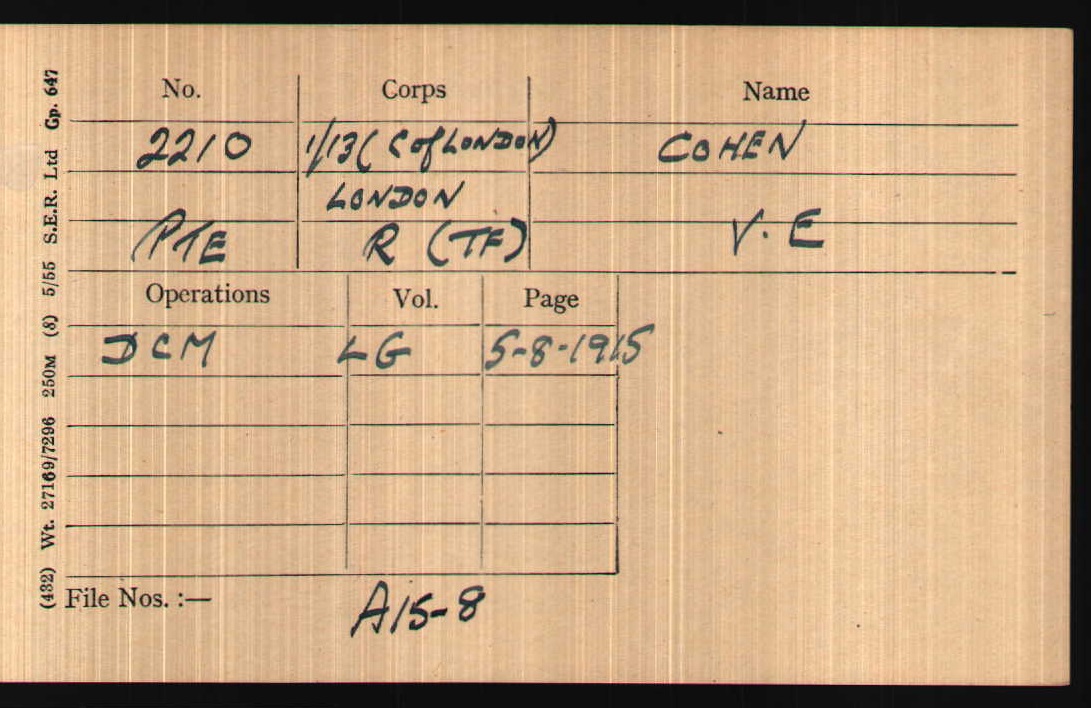 No. Corps Name
2210 1/13 (C of LONDON) COHEN
LONDON
PTE R (TF) V. E
Operations Vol. Page
DCM LG 5-8-1915
File Nos. :—
A15-8
(432) Wt. 27169/7296 250M (8) 5/55 S.E.R. Ltd Gp. 647